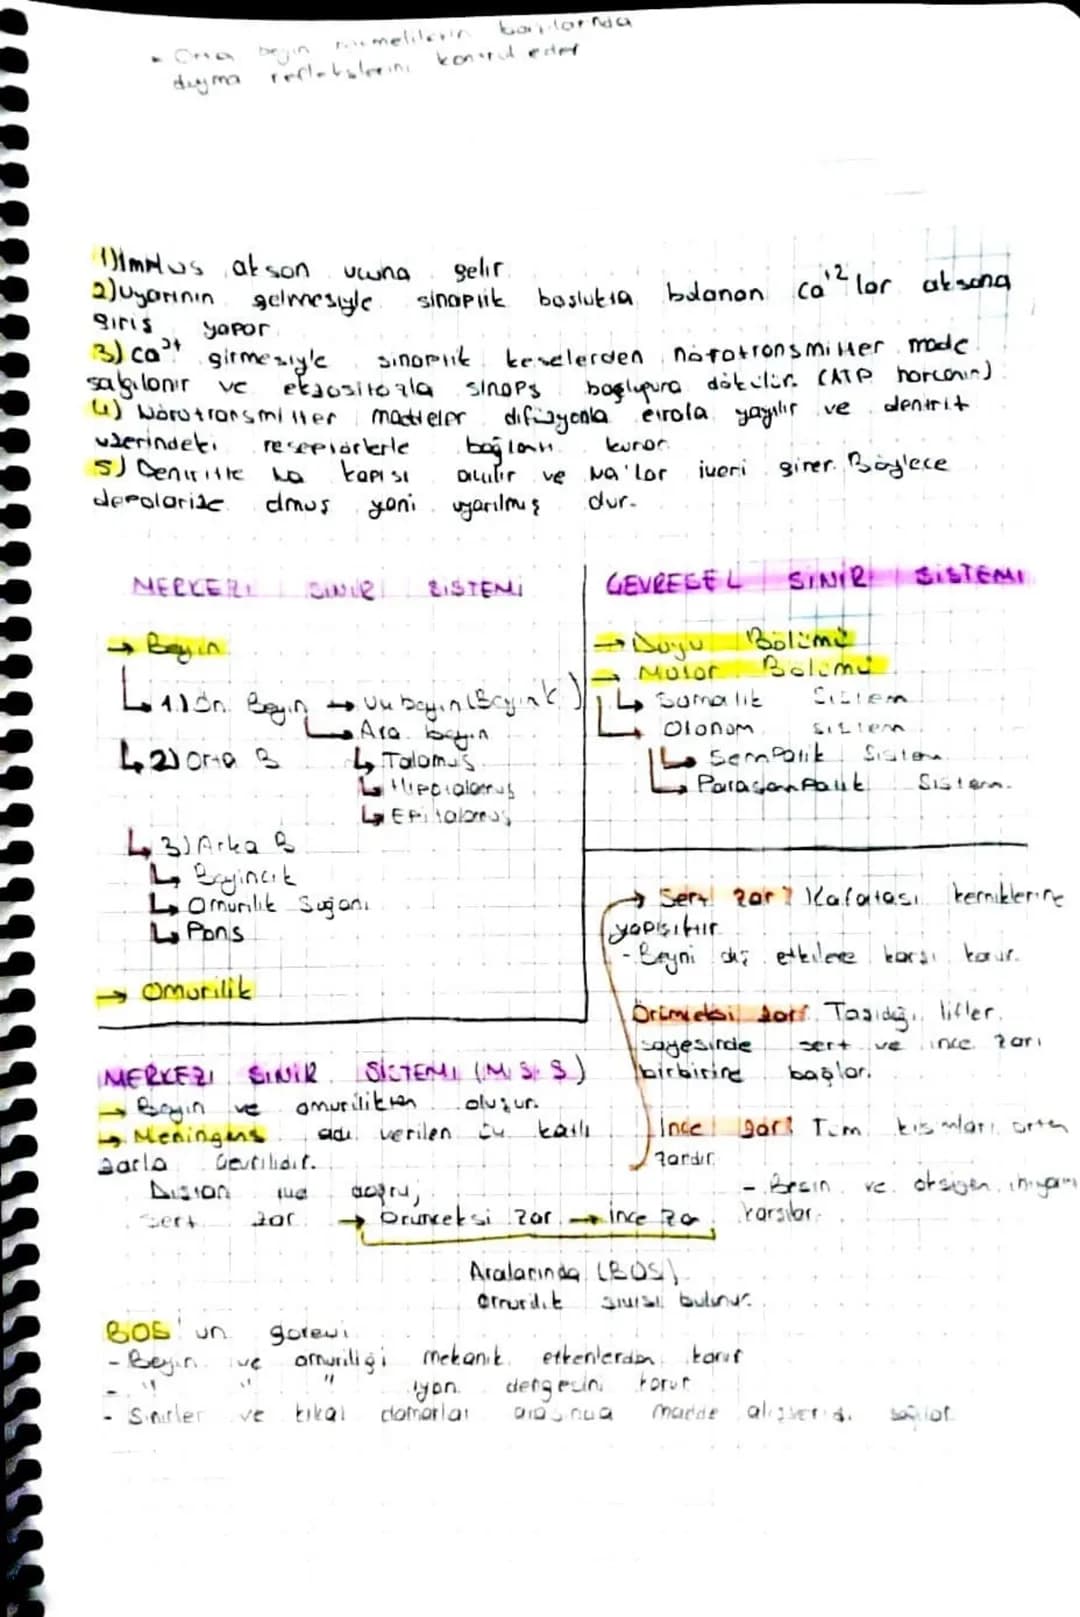 • Orta beyin memelilerin bazılarında
duyma reflekslerini kontrol eder
1) İmpuls akson ucuna gelir.
2) Uyarının gelmesiyle sinaptik boşlukta bulanan Ca⁺² lar aksona
giriş yapar.
3) Ca²⁺ girmesiyle sinaptik keselerden nörotransmitter madde
salgılanır ve ekzositozla sinaps boşluğuna dökülür. (ATP harcanır)
4) Nörotransmitter maddeler difüzyonla etrafa yayılır ve dentrit
üzerindeki reseptörlerle bağlantı kurar.
5) Dentritte Na kapısı açılır ve Na'lar içeri girer. Böylece
depolarize olmuş yani uyarılmış dur.
MERKEZİ SİNİR SİSTEMİ
→ Beyin
1.) Ön Beyin → Uç beyin (Beyin K.)
Ara beyin
2) Orta B
Talamus
Hipotalamus
Epitalamus
3) Arka B
Beyincik
Omurilik Soğanı
Pons
→ Omurilik
ÇEVRESEL SİNİR SİSTEMİ
→ Duyu Bölümü
→ Motor Bölümü
Somatik Sistem
Otonom sistem
Sempatik Sistem
Parasempatik Sistem.
→ Sert zar: Kafatası kemiklerine
yapışıktır
- Beyni dış etkilere karşı korur.
Örümceksi zar: Taşıdığı lifler
sayesinde sert ve ince zarı
birbirine bağlar.
İnce zar: Tüm kısmları örten
zardır.
- Besin ve oksijen ihtiyacını
karşılar.
MERKEZİ SİNİR SİSTEMİ (M.S.S)
→ Beyin ve omurilikten oluşur.
→ Meninges adı verilen üç katlı
zarla çevrilidir.
Dıştan içe doğru,
Sert zar → Örümceksi zar → İnce zar
Aralarında (BOS)
omurilik sıvısı bulunur.
BOS'un görevi
- Beyin ve omuriliği mekanik etkenlerden korur
- " " " iyon dengesini korur
- Sinirler ve kılcal damarlar arasında madde alışverişi sağlar.